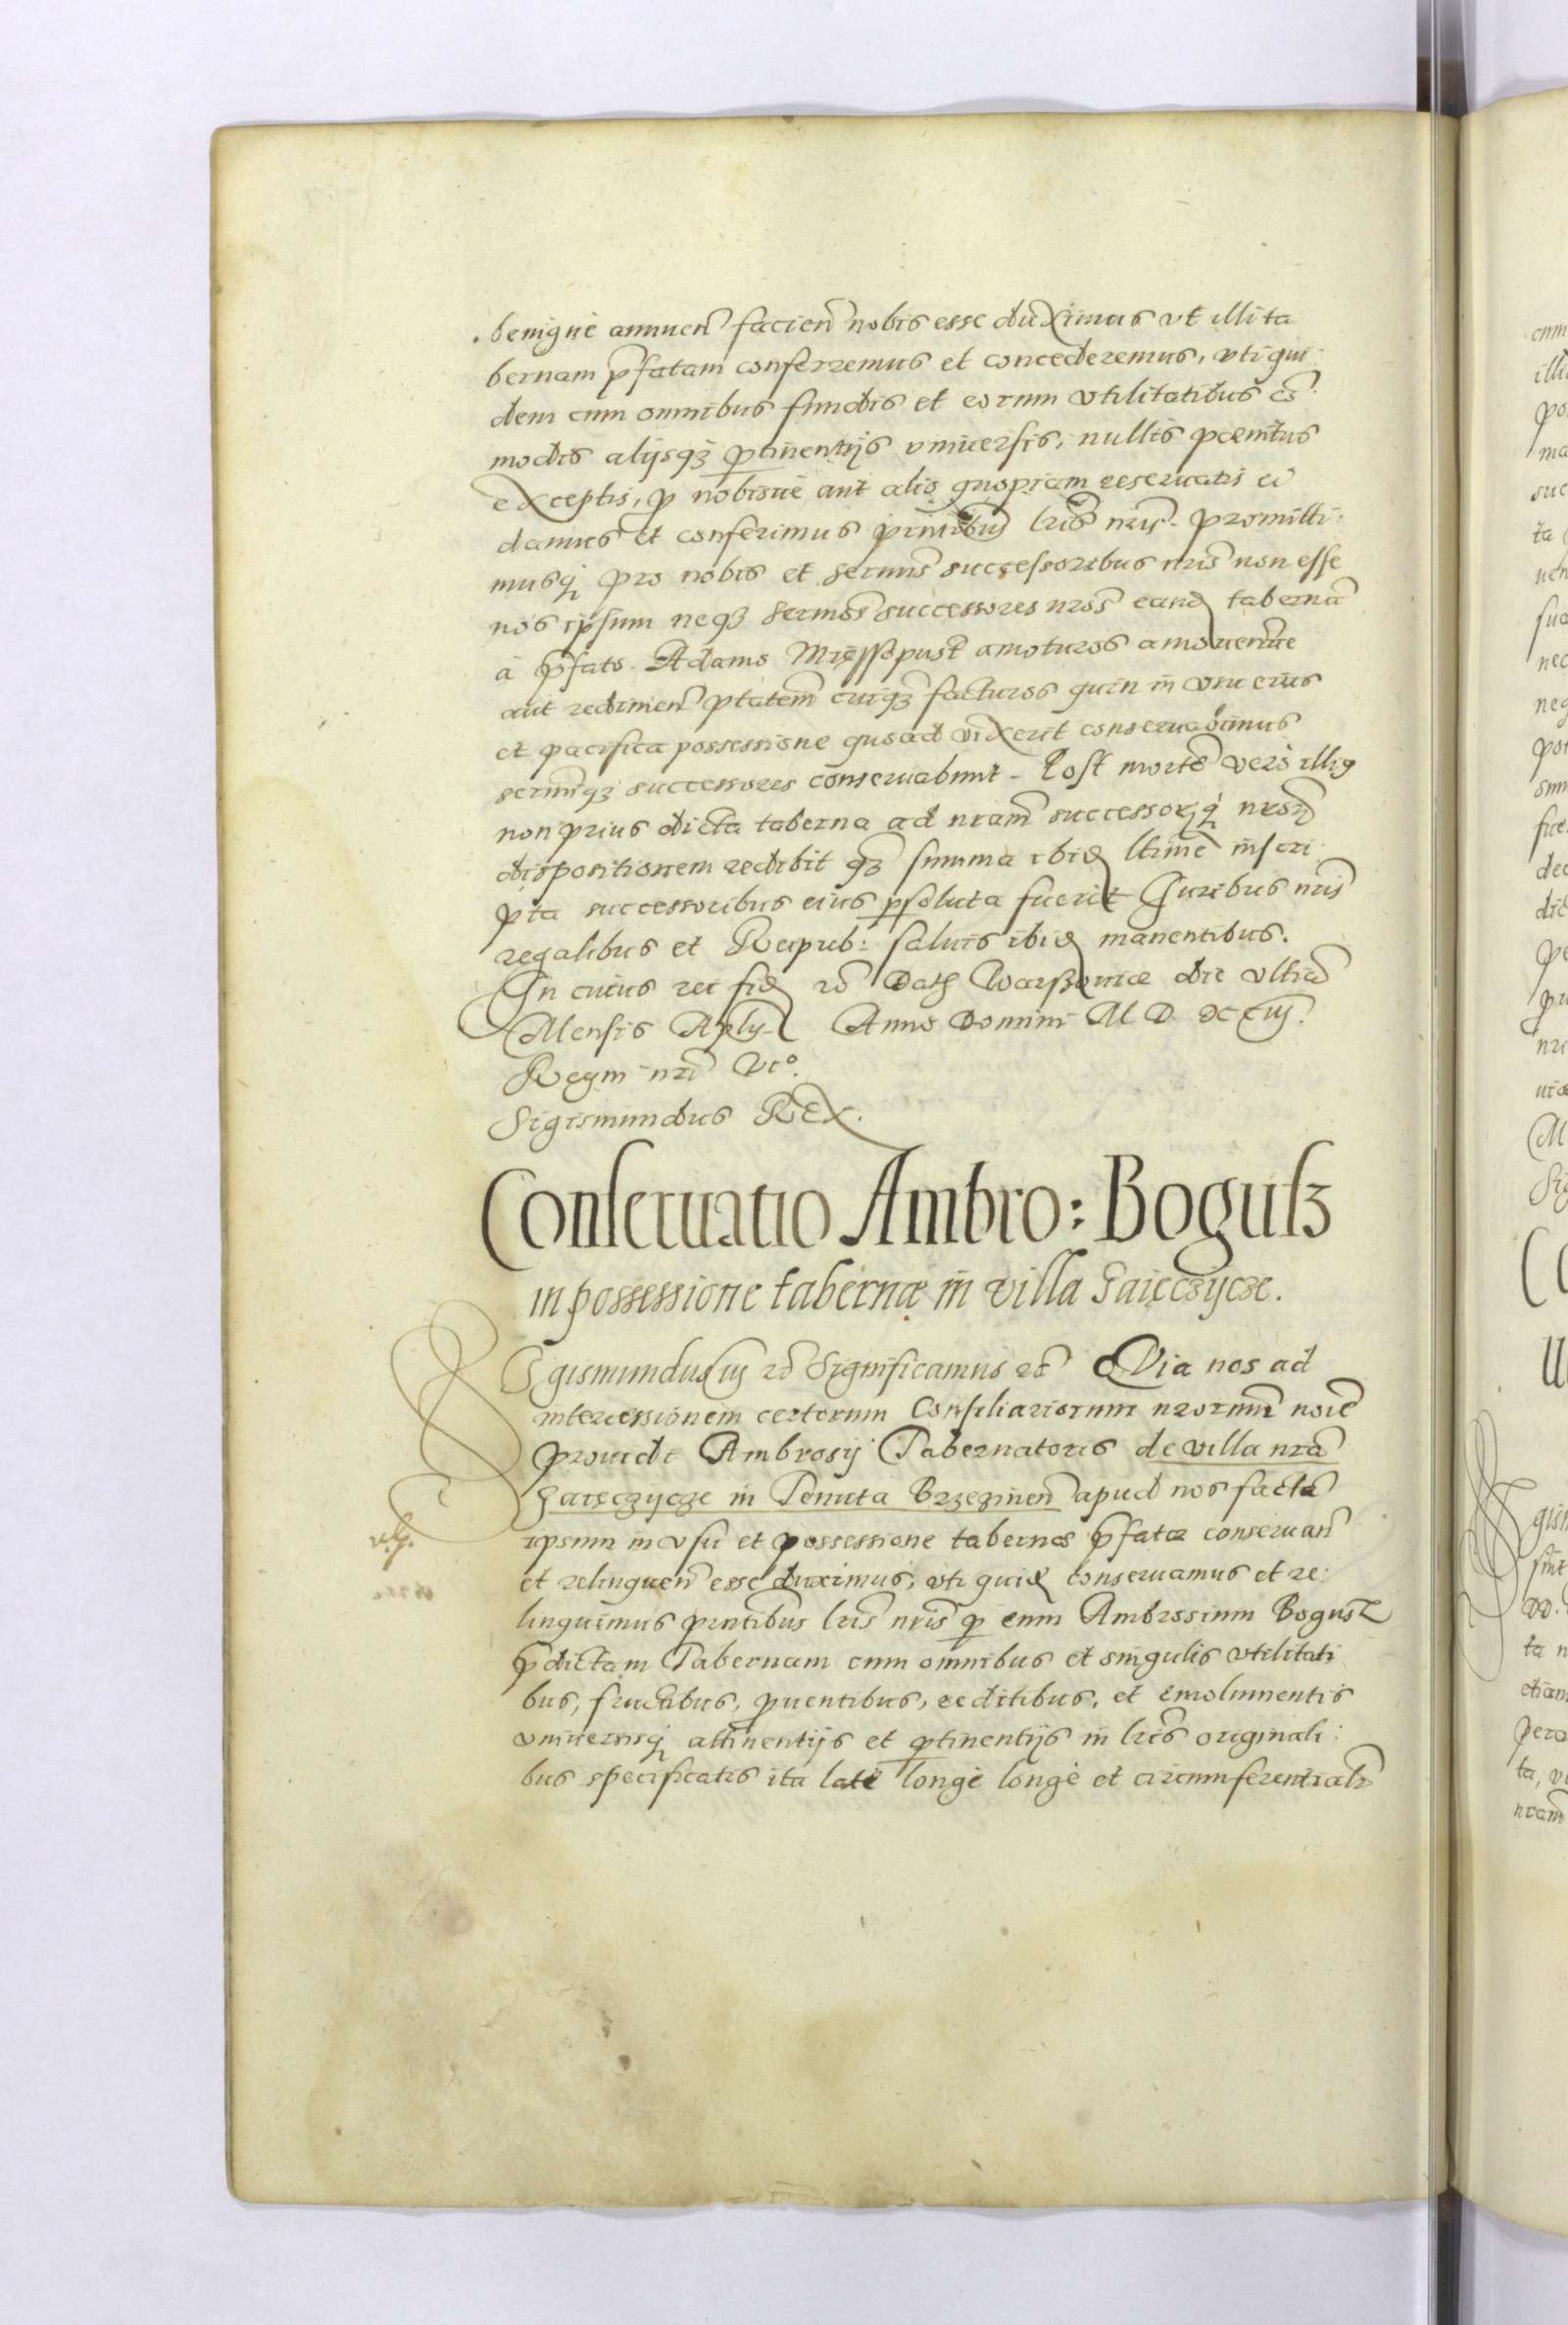 benignè annuen̄ facien̄ nobis esse duximus vt illi ta
bernam p̄fatam conferremus et concederemus, vti qui
dem cum omnibus fundis et eorum vtilitatibus cō
modis alijsqꝫ ꝑtinentijs vniuersis, nullis poenitus
exceptis, ꝑ nobisue aut alio quopiam reseruatis ei
damus et conferimus pn̄tibus lr̄is nr̄is. Promitti
musqꝫ pro nobis et serenis̄ successoribus nr̄is non esse
nos ipsum neqꝫ sermos̄ successores nr̄os eand tabernā
à p̄fato Adamo Mięssopust amoturos amouendiue
aut redimen̄ ptatem̄ cuiqꝫ facturos quin in vsu eius
et pacifica possessione quoad vixerit conseruabimus
sermiqꝫ successores conseruabunt. Post mortē verò illiꝰ
non prius dicta taberna ad nr̄am successorꝫqꝫ nr̄oꝝ
dispositionem redibit qꝫ summa ibid ltimē inscri
pta successoribus eius ꝑsoluta fuerit Juribus nr̄is
regalibus et Reipub: saluis ibid manentibus.
In cuius rei fid rc̄ Datꝫ Warssouiæ die vltima
Mensis Aplis. Anno Domini M D XCIIJ.
Regni nr̄i Vto.
Sigismundus REX.
Conseruatio Ambro: Bogusz
in possessione tabernæ in villa Gaięczycze.
Sigismundus iij rc̄ Significamus rc̄ QVia nos ad
intercessionem certorum Consiliariorum nrorum noīe
prouidi Ambrosij Tabernatoris de villa nr̄a
Gaięczycze in Tenuta Brzezinen̄ apud nos factā
ipsum in vsu et possessione tabernæ p̄fatæ conseruan̄
et relinquen̄ esse duximus, vti quid conseruamus et re:
linquimus pn̄tibus lr̄is nr̄is ꝑ eum Ambrosium Bogusz
p̄dictam Tabernam cum omnibus et singulis vtilitati
bus, fructibus, ꝓuentibus, reditibus, et emolumentis
vniuersisqꝫ attinentijs et ꝑtinentijs in lr̄is originali:
bus specificatis ita latè longè longè et circumferentialr̄